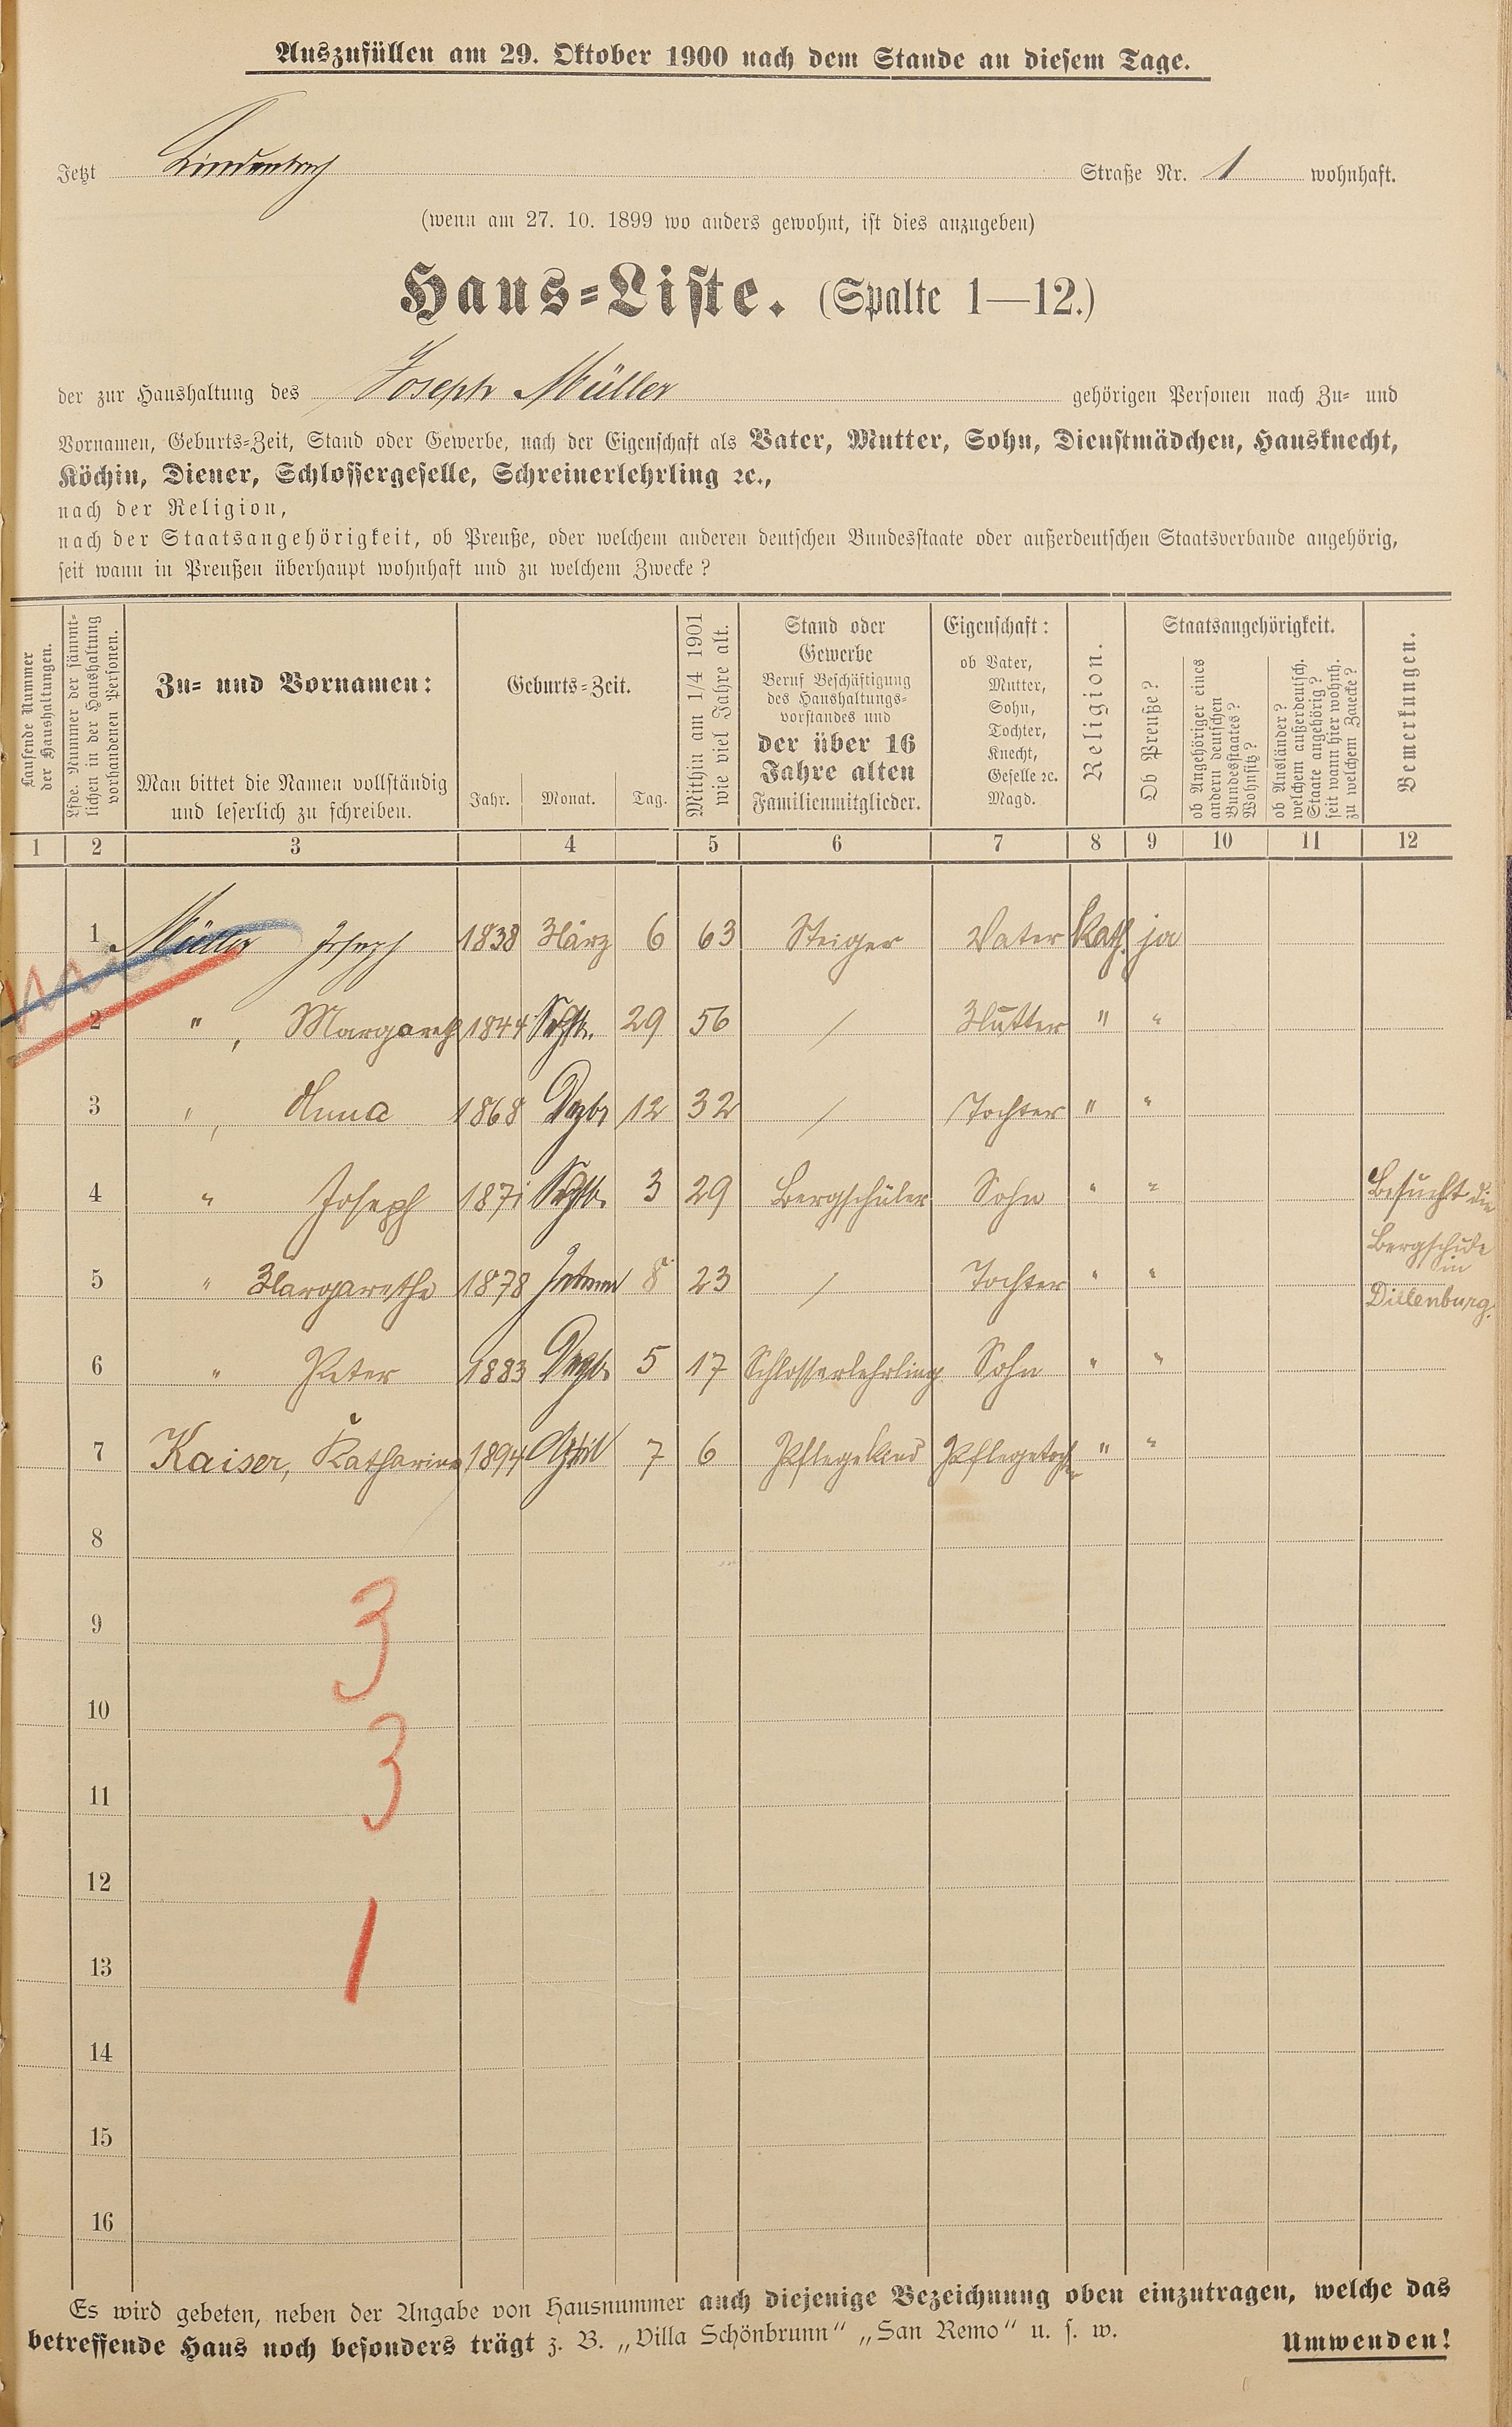 Auszufüllen am 29. Oktober 1900 nach dem Stande an diesem Tage.
Jetzt Lindenbach Straße Nr. 1 wohnhaft.
(wenn am 27. 10. 1899 wo anders gewohnt, ist dies anzugeben)
Haus-Liste. (Spalte 1—12.)
der zur Haushaltung des Joseph Müller gehörigen Personen nach Zu- und
Vornamen, Geburts-Zeit, Stand oder Gewerbe, nach der Eigenschaft als Vater, Mutter, Sohn, Dienstmädchen, Hausknecht,
Köchin, Diener, Schlossergeselle, Schreinerlehrling ꝛc.,
nach der Religion,
nach der Staatsangehörigkeit, ob Preuße, oder welchem anderen deutschen Bundesstaate oder außerdeutschen Staatsverbande angehörig,
seit wann in Preußen überhaupt wohnhaft und zu welchem Zwecke?
Laufende Nummer
der Haushaltungen.
Lfde. Nummer der sämmt-
lichen in der Haushaltung
vorhandenen Personen.
Zu- und Vornamen:
Man bittet die Namen vollständig
und leserlich zu schreiben.
Geburts-Zeit.
Jahr. Monat. Tag.
Mithin am 1/4 1901
wie viel Jahre alt.
Stand oder
Gewerbe
Beruf Beschäftigung
des Haushaltungs-
vorstandes und
der über 16
Jahre alten
Familienmitglieder.
Eigenschaft:
ob Vater,
Mutter,
Sohn,
Tochter,
Knecht,
Geselle ꝛc.
Magd.
Religion.
Staatsangehörigkeit.
Ob Preuße?
ob Angehöriger eines
andern deutschen
Bundesstaates?
Wohnsitz?
ob Ausländer?
welchem außerdeutsch.
Staate angehörig?
seit wann hier wohnh.
zu welchem Zwecke?
Bemerkungen.
1 2 3 4 5 6 7 8 9 10 11 12
1 Müller Joseph 1838 März 6 63 Steiger Vater Kath. ja
2 " , Margareth 1844 Septb. 29 56 / Mutter " "
3 " , Anna 1868 Dezbr 12 32 / Tochter " "
4 " Joseph 1871 Septb. 3 29 Bergschüler Sohn " " Besucht die
Bergschule
in
Dillenburg.
5 " Margarethe 1878 8 23 / Tochter " "
6 " Peter 1883 Dezb. 5 17 Schlosserlehrling Sohn " "
7 Kaiser, Katharina 1894 April 7 6 Pflegekind Pflegetochter " "
8
9
3
10
3
11
12
1
13
14
15
16
Es wird gebeten, neben der Angabe von Hausnummer auch diejenige Bezeichnung oben einzutragen, welche das
betreffende Haus noch besonders trägt z. B. „Villa Schönbrunn“ „San Remo“ u. s. w. Umwenden!